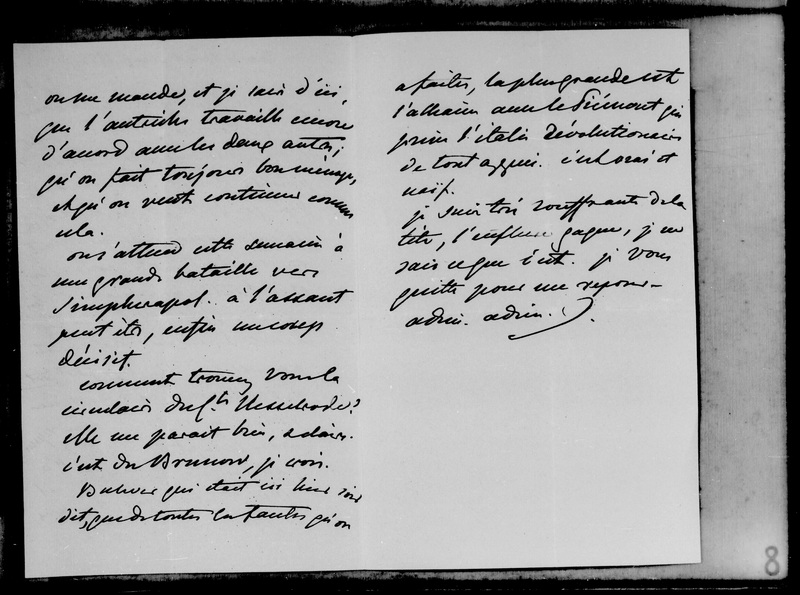 on me mande, et je sais d'ici,
que l'autriche travaille encore
d'accord avec les deux autres,
qu'on fait toujours bon ménage,
et qu'on veut continuer comme
cela.
on s'attend cette semaine à
une grande bataille vers
Simpheropol. à l'assaut
peut être, enfin un coup
décisif.
comment trouvez vous la
circulaire du Cte Nesselrode?
elle me parait bien, & claire.
c'est du Brunnow, je crois.
Bulwer qui était ici hier soir
dit, que de toutes les fautes qu'on
a faites, la plus grande est
l'alliance avec le Piémont qui
l'italie révolutionaire
de tout appui. c'est vrai et
naïf.
je suis très souffrante de la
tête, l'enflure gagne, je ne
sais ce que c'est. je vous
quitte pour me reposer
adieu. adieu.
8